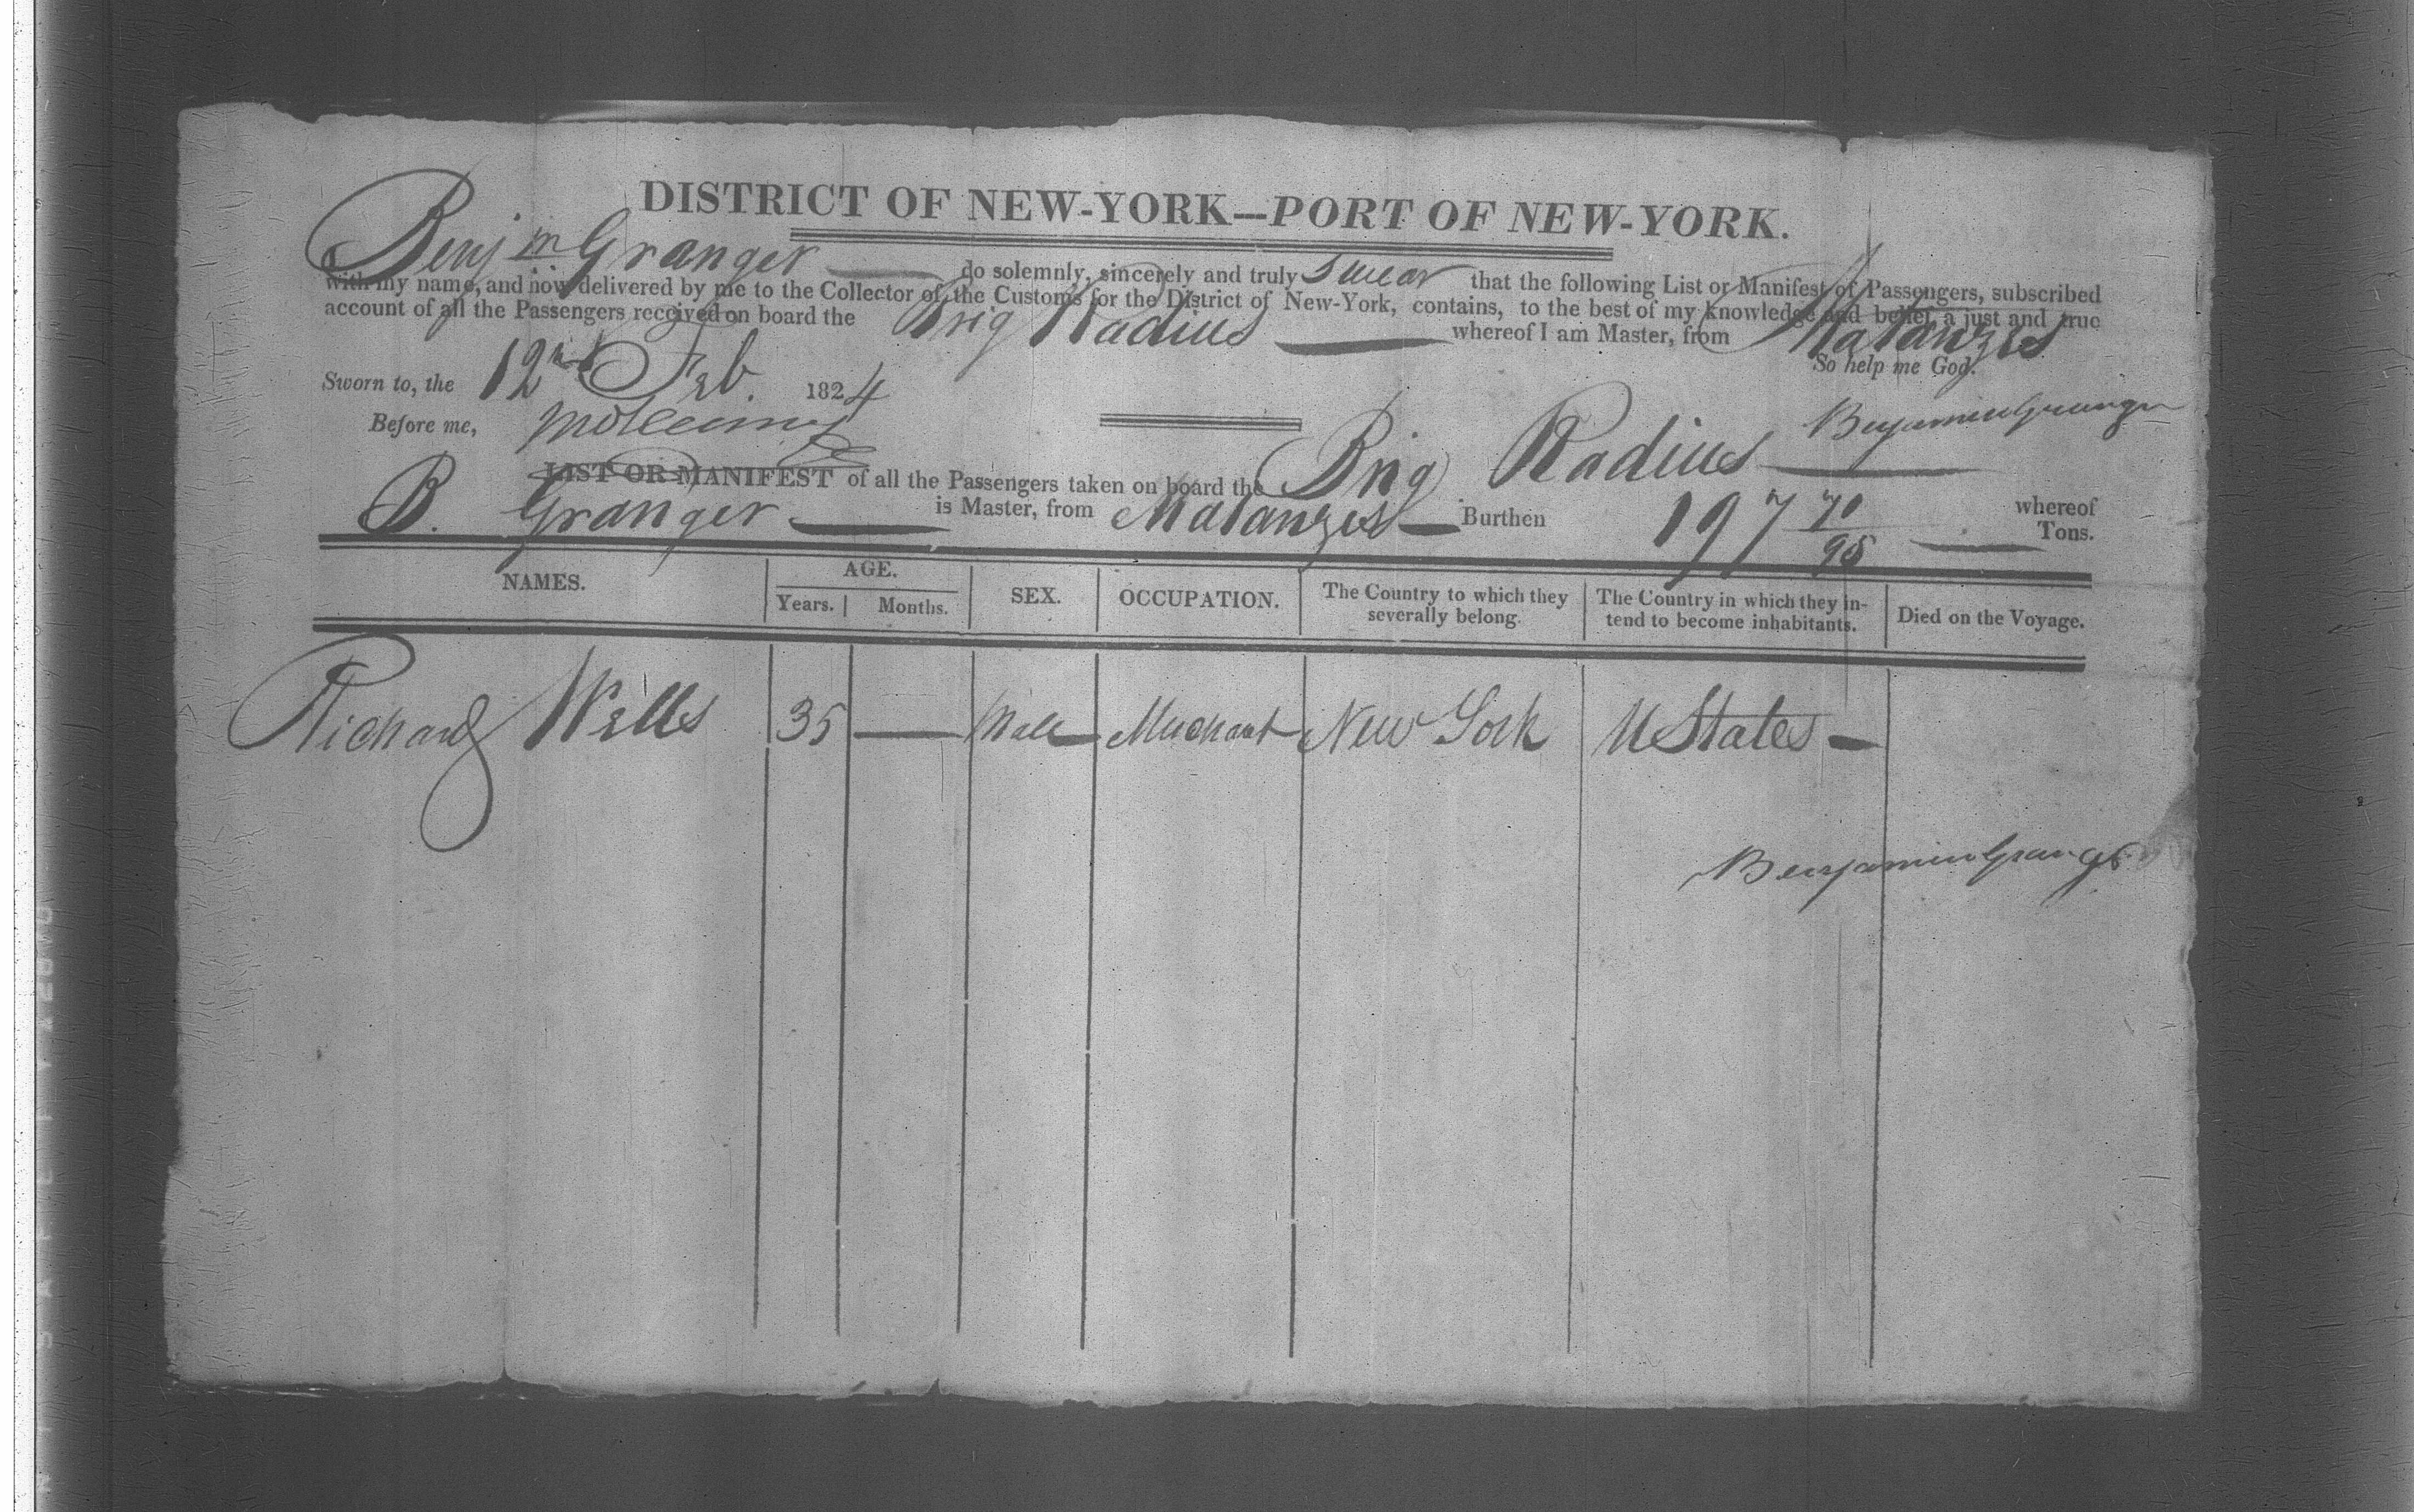 DISTRICT OF NEW-YORK—PORT OF NEW-YORK.
Benjmn Granger do solemnly, sincerely and truly Swear that the following List or Manifest of Passengers, subscribed
with my name, and now delivered by me to the Collector of the Customs for the District of New-York, contains, to the best of my knowledge and belief, a just and true
account of all the Passengers received on board the Brig Radius whereof I am Master, from Matanzes
So help me God.
Sworn to, the 12th Feb. 1824
Before me,
Benjamin Granger
LIST OR MANIFEST of all the Passengers taken on board the Brig Radius whereof
B. Granger is Master, from Matanzes Burthen 197 71/95 Tons.
NAMES. AGE. SEX. OCCUPATION. The Country to which they severally belong. The Country in which they intend to become inhabitants. Died on the Voyage.
Years. Months.
Richard Wells 35 — Male Merchant New York U States —
Benjamin Granger